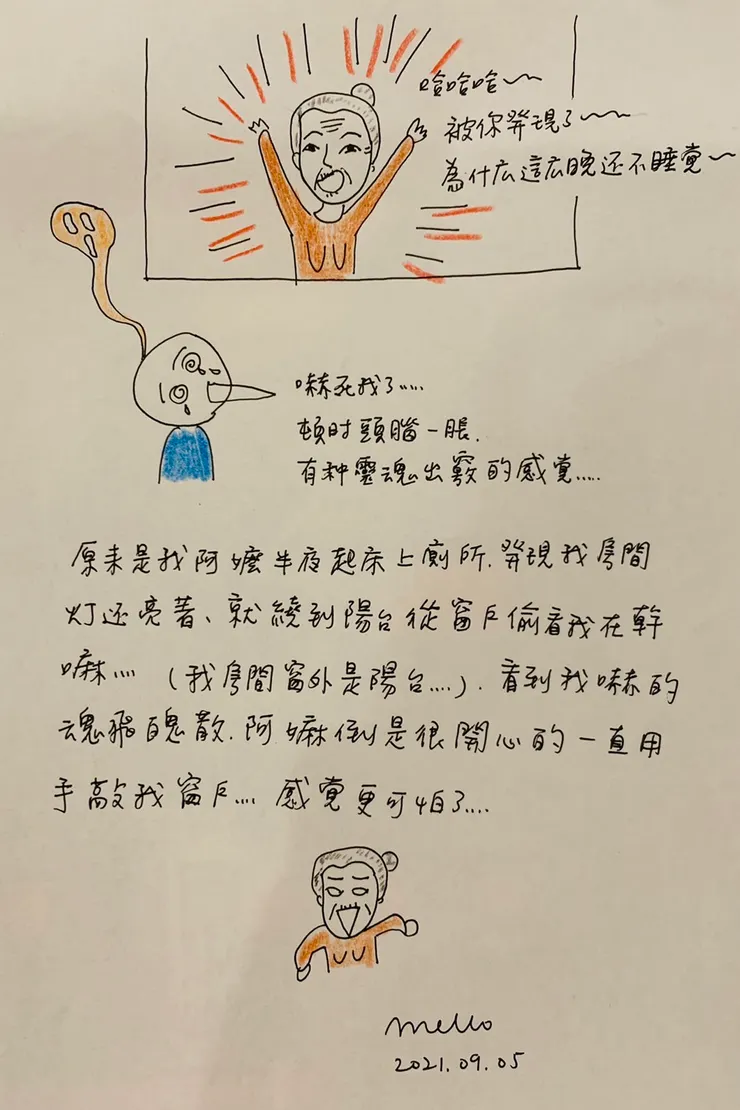 哈哈哈~~
被你發現了~~~
為什広這広晚还不睡覚~
嚇死我了.....
頓时頭腦一脹.
有种靈魂出竅的感覚.....
原来是我阿嬤半夜起床上廁所.發現我房間
灯还亮著、就繞到陽台從窗戶偷看我在幹
嘛.... (我房間窗外是陽台....). 看到我嚇的
魂飛魄散.阿嬤倒是很開心的一直用
手敲我窗戶.... 感覚更可怕了....
mello
2021.09.05